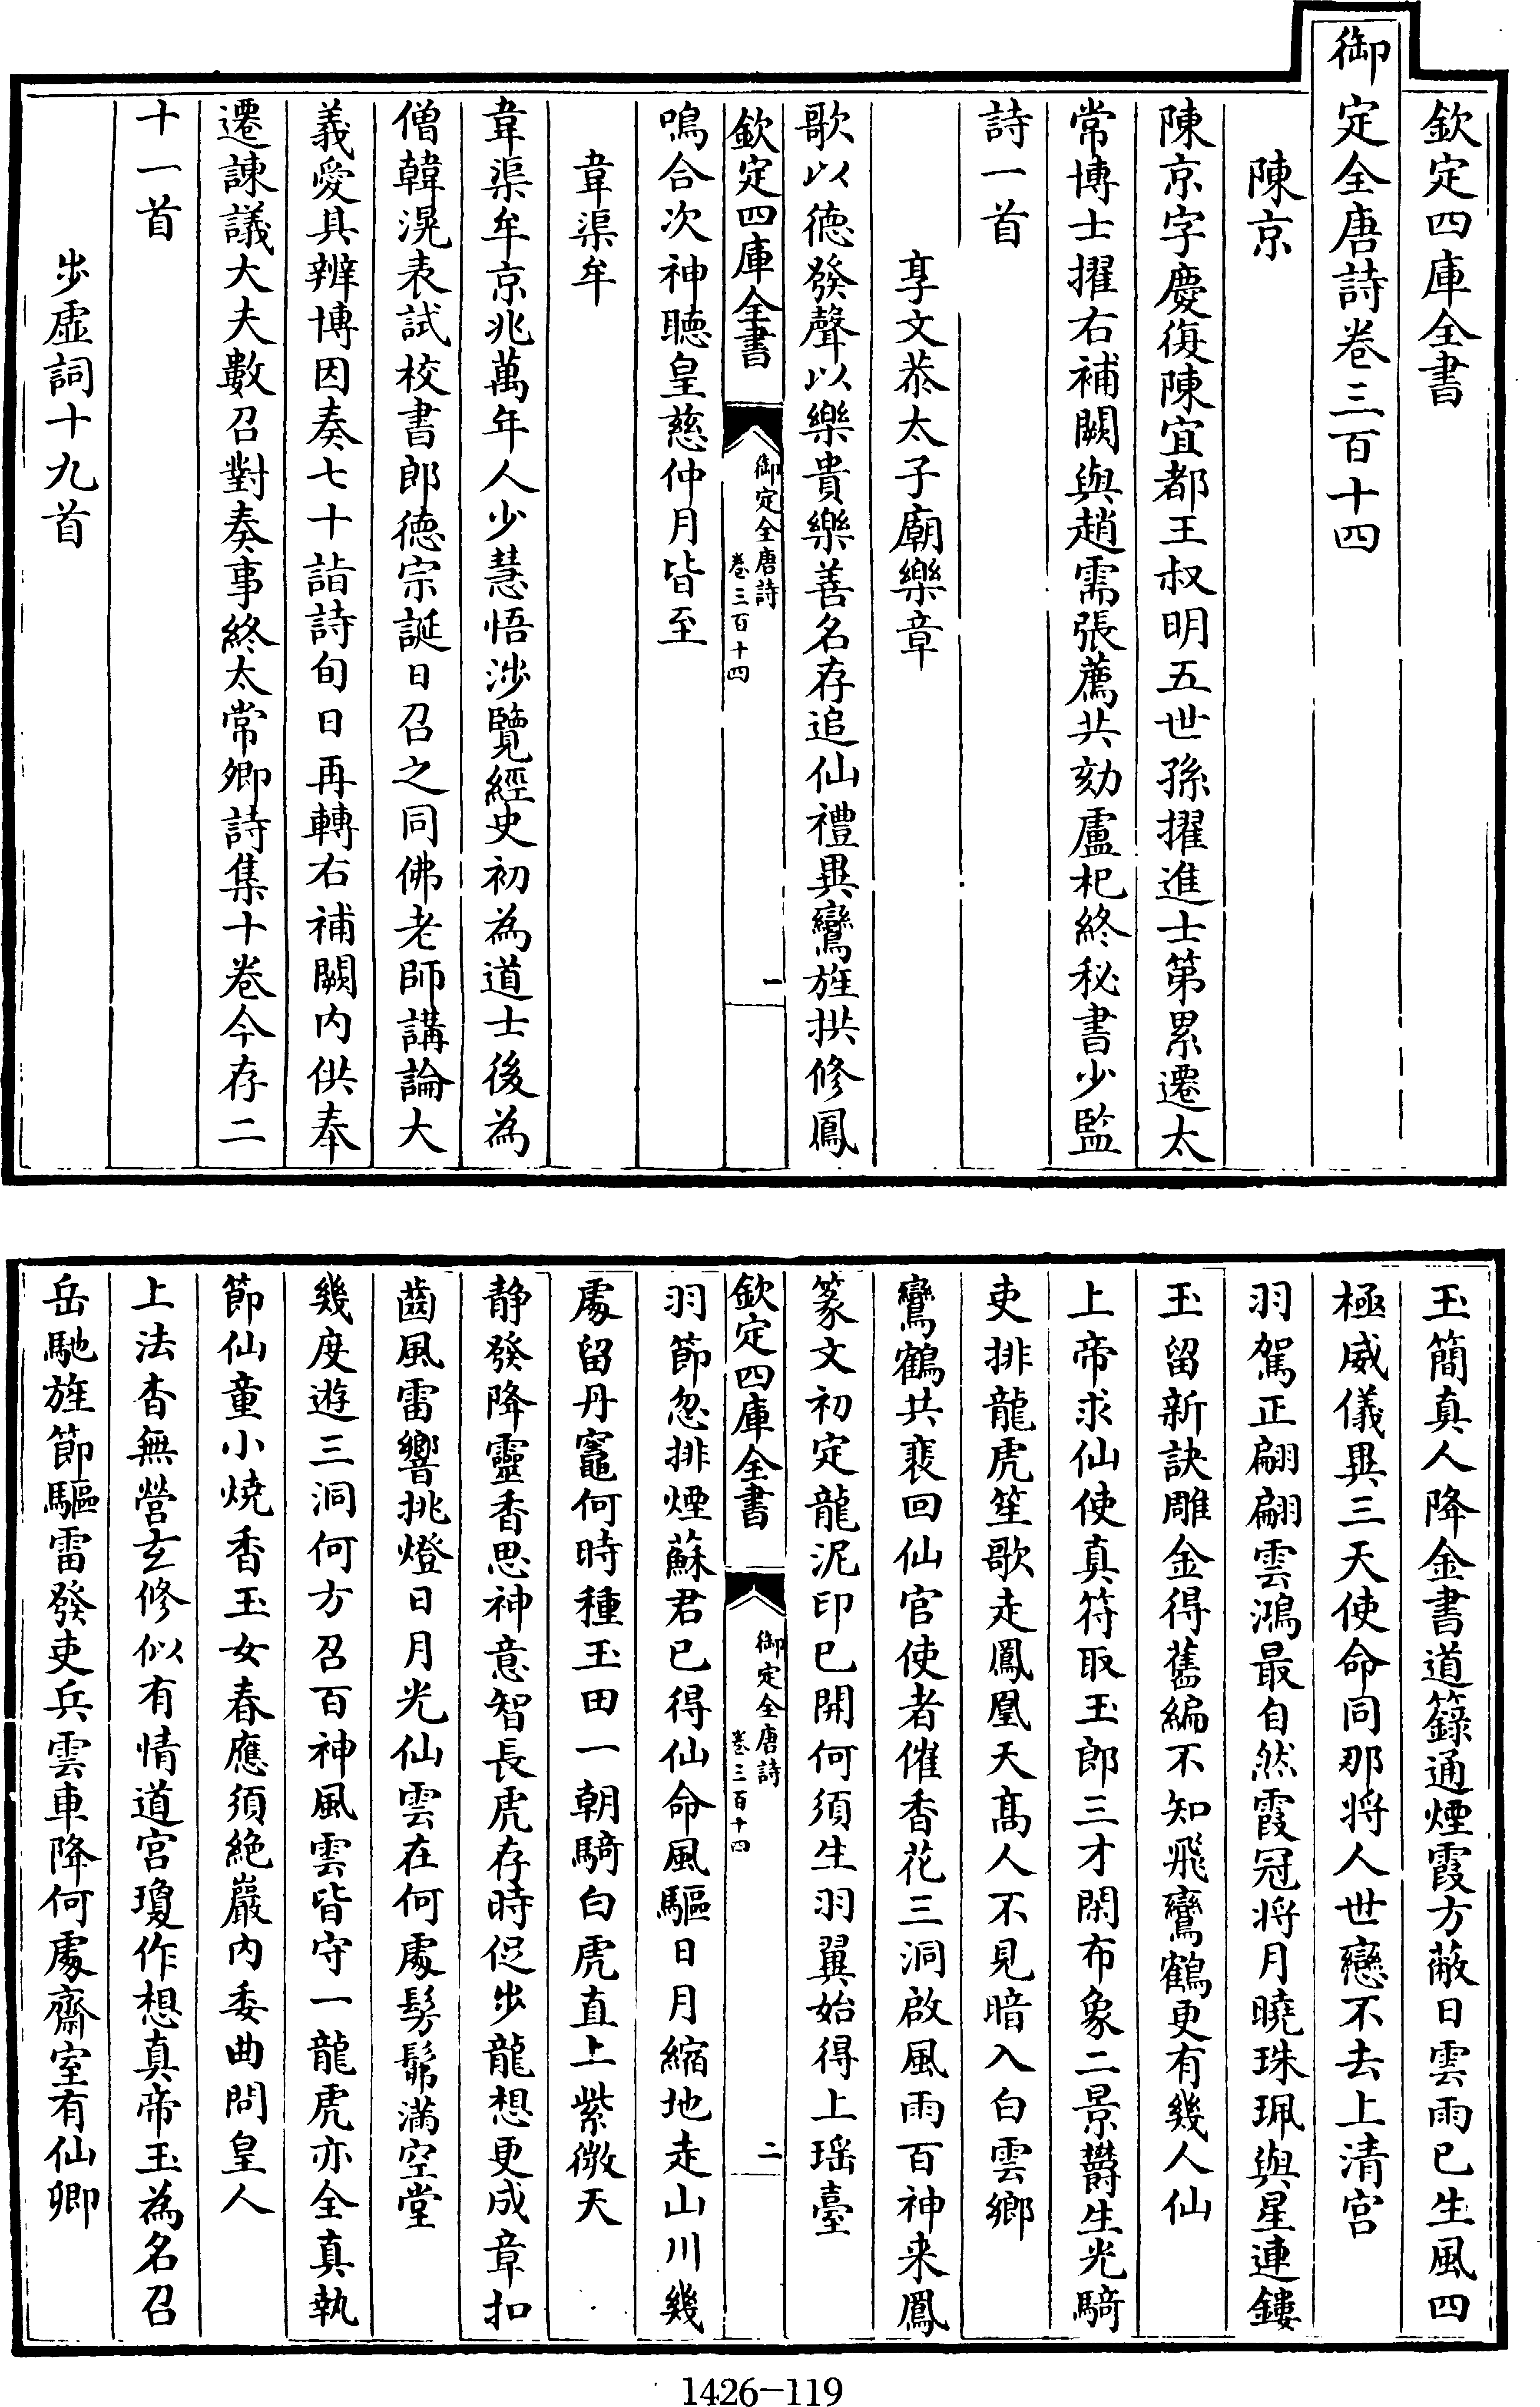 欽定四庫全書
御定全唐詩卷三百十四
陳京
陳京字慶復陳宜都王叔明五世孫擢進士第累遷太
常博士擢右補闕與趙需張薦共劾盧杞終秘書少監
詩一首
享文恭太子廟樂章
歌以德發聲以樂貴樂善名存追仙禮異鸞旌拱修鳳
欽定四庫全書
御定全唐詩
卷三百十四
一
鳴合次神聽皇慈仲月皆至
韋渠牟
韋渠牟京兆萬年人少慧悟涉覽經史初為道士後為
僧韓滉表試校書郎德宗誕日召之同佛老師講論大
義愛其辨博因奏七十詣詩旬日再轉右補闕內供奉
遷諫議大夫數召對奏事終太常卿詩集十卷今存二
十一首
步虛詞十九首
玉簡真人降金書道籙通煙霞方蔽日雲雨已生風四
極威儀異三天使命同那將人世戀不去上清宮
羽駕正翩翩雲鴻最自然霞冠將月曉珠珮與星連鏤
玉留新訣雕金得舊編不知飛鸞鶴更有幾人仙
上帝求仙使真符取玉郎三才閑布象二景鬱生光騎
吏排龍虎笙歌走鳳凰天高人不見暗入白雲鄉
鸞鶴共裵回仙官使者催香花三洞啟風雨百神来鳳
篆文初定龍泥印已開何須生羽翼始得上瑤臺
欽定四庫全書
御定全唐詩
卷三百十四
二
羽節忽排煙蘇君已得仙命風驅日月縮地走山川幾
處留丹竈何時種玉田一朝騎白虎直上紫微天
静發降靈香思神意智長虎存時促步龍想更成章扣
齒風雷響挑燈日月光仙雲在何處髣髴滿空堂
幾度遊三洞何方召百神風雲皆守一龍虎亦全真執
節仙童小燒香玉女春應須絶巖內委曲問皇人
上法杳無營玄修似有情道宮瓊作想真帝玉為名召
岳馳旌節驅雷發吏兵雲車降何處齋室有仙卿
1426-119